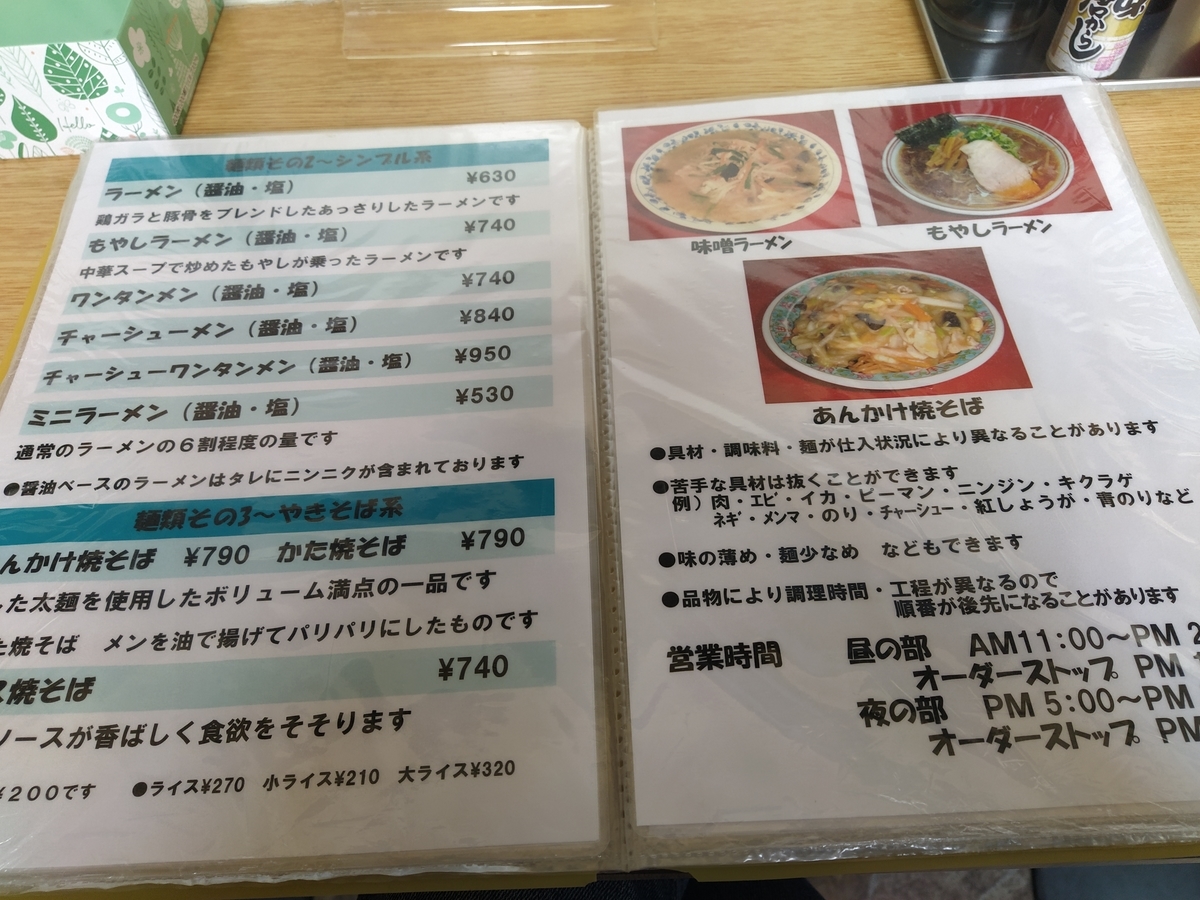 Hello
麺類その2～シンプル系
ラーメン（醤油・塩） ¥630
鶏ガラと豚骨をブレンドしたあっさりしたラーメンです
もやしラーメン（醤油・塩） ¥740
中華スープで炒めたもやしが乗ったラーメンです
ワンタンメン（醤油・塩） ¥740
チャーシューメン（醤油・塩） ¥840
チャーシューワンタンメン（醤油・塩） ¥950
ミニラーメン（醤油・塩） ¥530
通常のラーメンの６割程度の量です
●醤油ベースのラーメンはタレにニンニクが含まれております
麺類その3～やきそば系
んかけ焼そば ¥790 かた焼そば ¥790
した太麺を使用したボリューム満点の一品です
た焼そば メンを油で揚げてパリパリにしたものです
ス焼そば ¥740
ソースが香ばしく食欲をそそります
¥２００です ●ライス¥270 小ライス¥210 大ライス¥320
味噌ラーメン
もやしラーメン
あんかけ焼そば
●具材・調味料・麺が仕入状況により異なることがあります
●苦手な具材は抜くことができます
例）肉・エビ・イカ・ピーマン・ニンジン・キクラゲ
ネギ・メンマ・のり・チャーシュー・紅しょうが・青のりなど
●味の薄め・麺少なめ などもできます
●品物により調理時間・工程が異なるので
順番が後先になることがあります
営業時間 昼の部 AM11:00～PM 2
オーダーストップ PM 1
夜の部 PM 5:00～PM
オーダーストップ PM